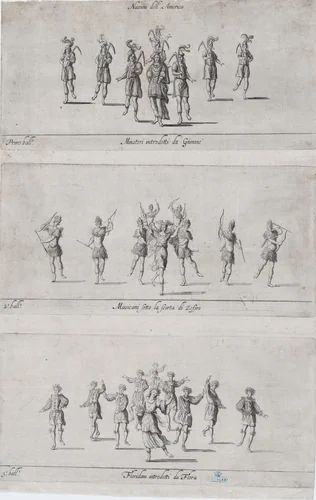 Nazioni dell' America
Primo ball.º
introdotti da
2.º ball.º
Messicani sotto la scorta di Zefiro
3.º ball.º
Floridani introdotti da Flora